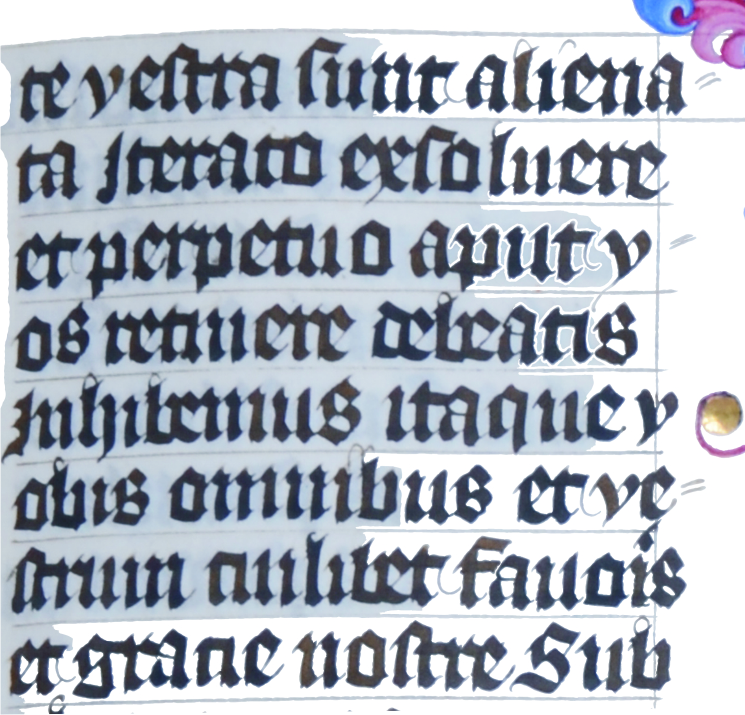 te vestra sunt aliena
ta Iterato exsoluere
et perpetuo aput v
os retinere debeatis
Inhibemus itaque v
obis omnibus et ve
strum cuilibet fauoris
et gracie nostre Sub